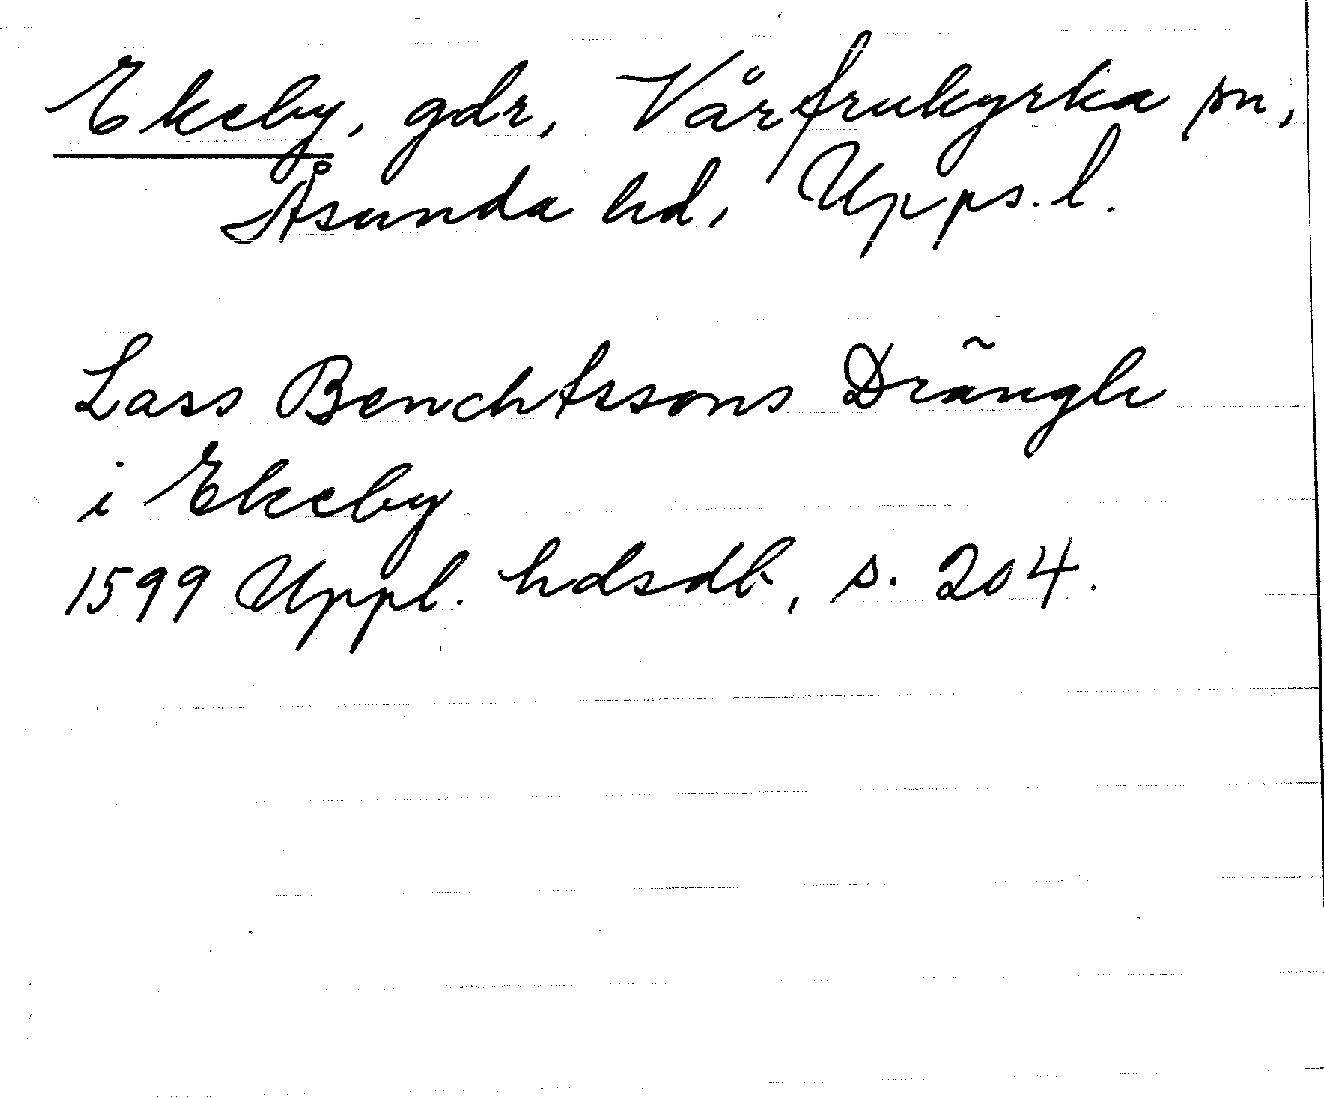 Ekeby, gdr, Vårfrukyrka sn,
Åsunda hd, Upps. l.
Lass Benchtssons Drãngh
i Ekeby
1599 Uppl. hdsdb, s. 204.